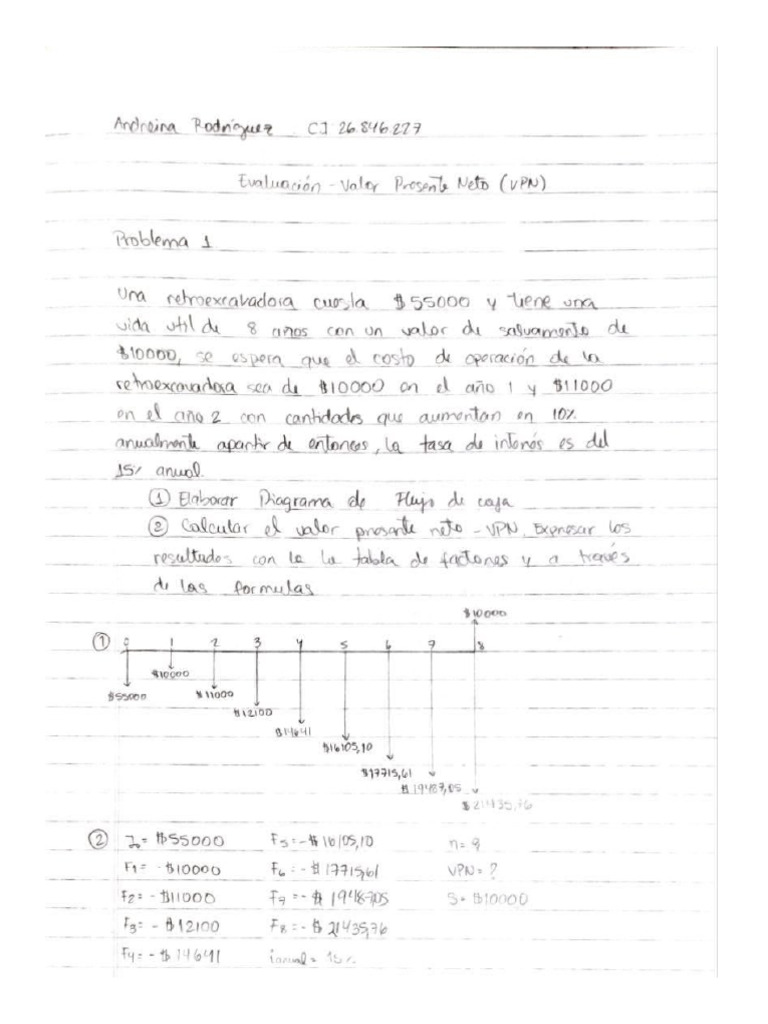 Andreina Rodríguez CI 26.846.277
Evaluación - Valor Presente Neto (VPN)
Problema 1
Una retroexcavadora cuesta $55000 y tiene una
vida util de 8 años con un valor de salvamento de
$10000, se espera que el costo de operación de la
retroexcavadora sea de $10000 en el año 1 y $11000
en el año 2 con cantidades que aumentan en 10%
anualmente apartir de entonces, la tasa de interés es del
15% anual.
① Elaborar Diagrama de Flujo de caja
② Calcular el valor presente neto - VPN. Expresar los
resultados con la la tabla de factores y a través
de las formulas
$10000
① 0 1 2 3 4 5 6 7 8
$10000
$55000 $11000
$12100
$14641
$16105,10
$17715,61
$19487,05
$21435,76
② I₀= $55000 F5=-$16105,10 n= 9
F1= -$10000 F6=-$17715,61 VPN= ?
F2= -$11000 F7=-$19487,05 S= $10000
F3= -$12100 F8=-$21435,76
F4= -$14641 ianual= 15%